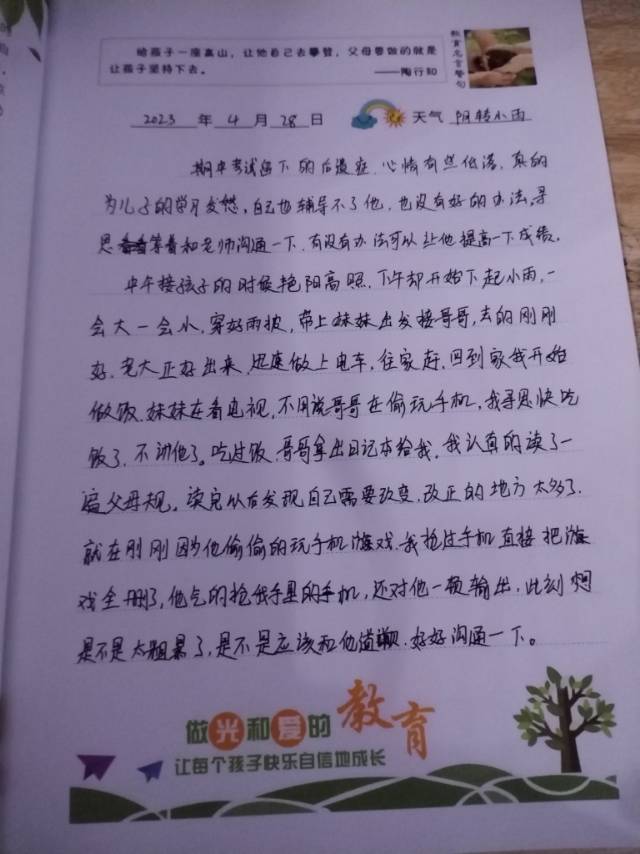 给孩子一座高山，让他自己去攀登，父母要做的就是
让孩子坚持下去。
——陶行知
教育名言警句
2023 年 4 月 28 日 天气 阴转小雨
期中考试留下的后遗症，心情有些低落，真的
为儿子的学习发愁，自己也辅导不了他，也没有好的办法，寻
思着等着和老师沟通一下，有没有办法可以让他提高一下成绩。
中午接孩子的时候艳阳高照，下午却开始下起小雨，一
会大一会小，穿好雨披，带上妹妹出发接哥哥，去的刚刚
好，老大正好出来，迅速做上电车，往家赶，回到家我开始
做饭，妹妹在看电视，不用说哥哥在偷玩手机，我寻思快吃
饭了，不训他了。吃过饭，哥哥拿出日记本给我，我认真的读了一
遍父母规，读完以后发现自己需要改变，改正的地方太多了，
就在刚刚因为他偷偷的玩手机游戏，我抢过手机直接把游
戏全删了，他气的抢我手里的手机，还对他一顿输出，此刻想
是不是太粗暴了，是不是应该和他道歉，好好沟通一下。
做光和爱的教育
让每个孩子快乐自信地成长